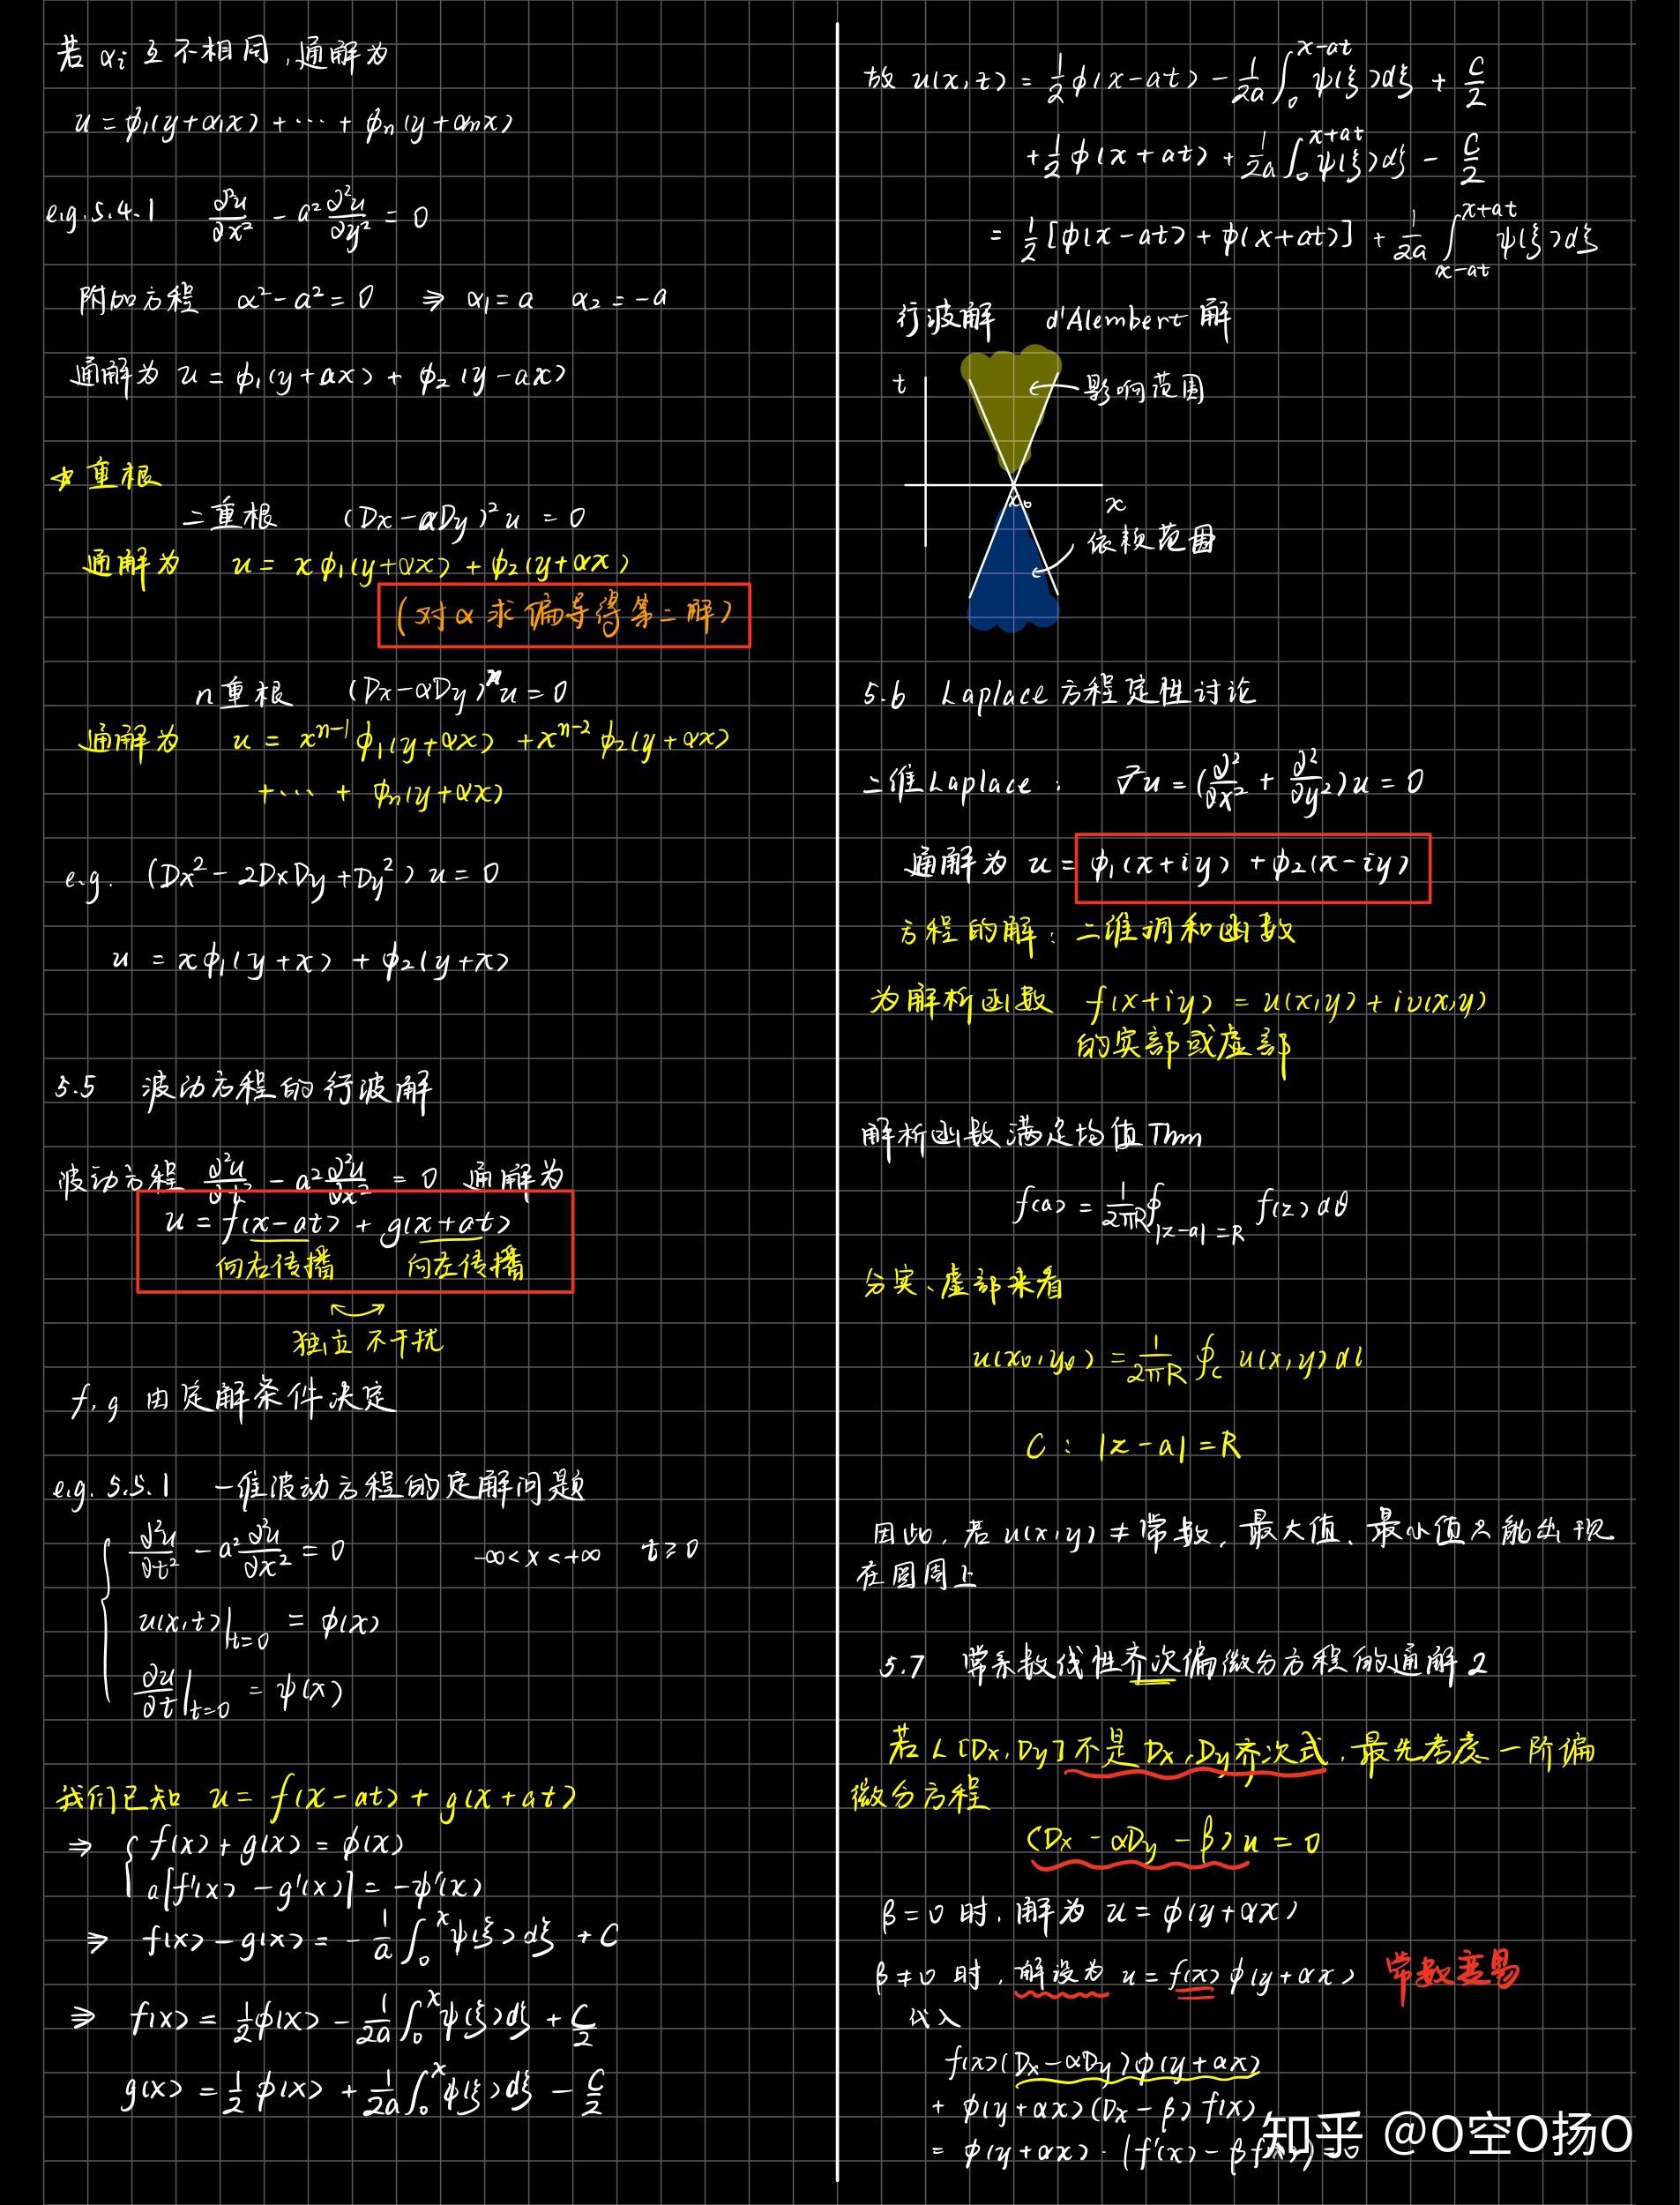 若 αi 互不相同,通解为
u = ϕ₁(y+α₁x) + ⋯ + ϕn(y+αnx)
e.g. 5.4.1 ∂²u/∂x² - a² ∂²u/∂y² = 0
附加方程 α² - a² = 0 ⇒ α₁ = a α₂ = -a
通解为 u = ϕ₁(y+ax) + ϕ₂(y-ax)
☆ 重根
二重根 (Dx-αDy)²u = 0
通解为 u = xϕ₁(y+αx) + ϕ₂(y+αx)
(对α求偏导得第二解)
n重根 (Dx-αDy)ⁿu = 0
通解为 u = xⁿ⁻¹ϕ₁(y+αx) + xⁿ⁻²ϕ₂(y+αx)
+ ⋯ + ϕn(y+αx)
e.g. (Dx² - 2DxDy + Dy²)u = 0
u = xϕ₁(y+x) + ϕ₂(y+x)
5.5 波动方程的行波解
波动方程 ∂²u/∂t² - a² ∂²u/∂x² = 0 通解为
u = f(x-at) + g(x+at)
向右传播 向左传播
独立 不干扰
f, g 由定解条件决定
e.g. 5.5.1 一维波动方程的定解问题
∂²u/∂t² - a² ∂²u/∂x² = 0 -∞<x<+∞ t≥0
u(x,t)|t=0 = ϕ(x)
∂u/∂t|t=0 = ψ(x)
我们已知 u = f(x-at) + g(x+at)
⇒ { f(x) + g(x) = ϕ(x)
a[f'(x) - g'(x)] = -ψ'(x)
⇒ f(x) - g(x) = -1/a ∫₀ˣ ψ(ξ)dξ + C
⇒ f(x) = 1/2 ϕ(x) - 1/2a ∫₀ˣ ψ(ξ)dξ + C/2
g(x) = 1/2 ϕ(x) + 1/2a ∫₀ˣ ψ(ξ)dξ - C/2
故 u(x,t) = 1/2 ϕ(x-at) - 1/2a ∫₀^(x-at) ψ(ξ)dξ + C/2
+ 1/2 ϕ(x+at) + 1/2a ∫₀^(x+at) ψ(ξ)dξ - C/2
= 1/2 [ϕ(x-at) + ϕ(x+at)] + 1/2a ∫_(x-at)^(x+at) ψ(ξ)dξ
行波解 d'Alembert 解
t
影响范围
x₀ x
依赖范围
5.6 Laplace 方程定性讨论
二维Laplace : ∇²u = (∂²/∂x² + ∂²/∂y²)u = 0
通解为 u = ϕ₁(x+iy) + ϕ₂(x-iy)
方程的解: 二维调和函数
为解析函数 f(x+iy) = u(x,y) + iv(x,y)
的实部或虚部
解析函数满足均值Thm
f(a) = 1/2πR ∮|z-a|=R f(z)dθ
分实、虚部来看
u(x₀,y₀) = 1/2πR ∮c u(x,y)dl
C : |z-a| = R
因此, 若 u(x,y) ≠ 常数, 最大值、最小值只能出现
在圆周上
5.7 常系数线性齐次偏微分方程的通解 2
若 L[Dx, Dy] 不是 Dx, Dy 齐次式, 最先考虑一阶偏
微分方程
(Dx - αDy - β)u = 0
β=0 时, 解为 u = ϕ(y+αx)
β≠0 时, 解设为 u = f(x)ϕ(y+αx) 常数变易
代入
f(x)(Dx-αDy)ϕ(y+αx)
+ ϕ(y+αx)(Dx-β)f(x)
= ϕ(y+αx)·(f'(x) - βf(x)) = 0
知乎 @O空O扬O